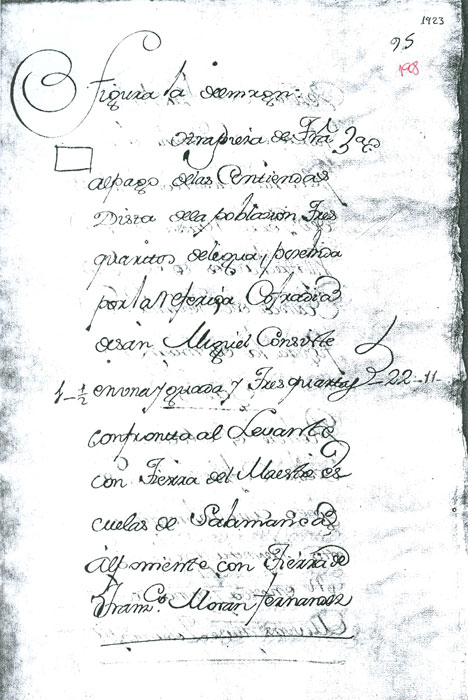 1923
95
198
Figura la del margen:
otra pieza de Frã 3ª
al pago delas Contiendas
Dista dela poblazion Tres
quartos delegua, poseehida
por la Referida Cofradia
de san Miguel Consiste
1-½ en una y quada y Tres quartas 22-11-
confronta al Levante
con Tierra del Maestre es
cuelas de Salamanca
al poniente con Tierra de
Franco Moran fernandez